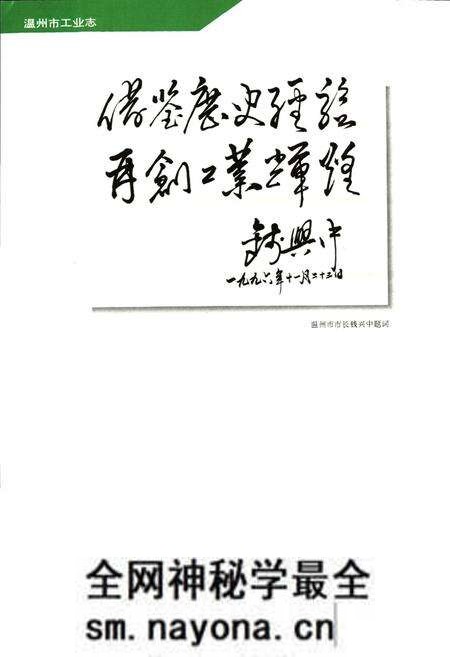 温州市工业志
借鉴歷史經驗
再創工業輝煌
錢興中
一九九六年十一月二十三日
温州市市长钱兴中题词
全网神秘学最全
sm.nayona.cn